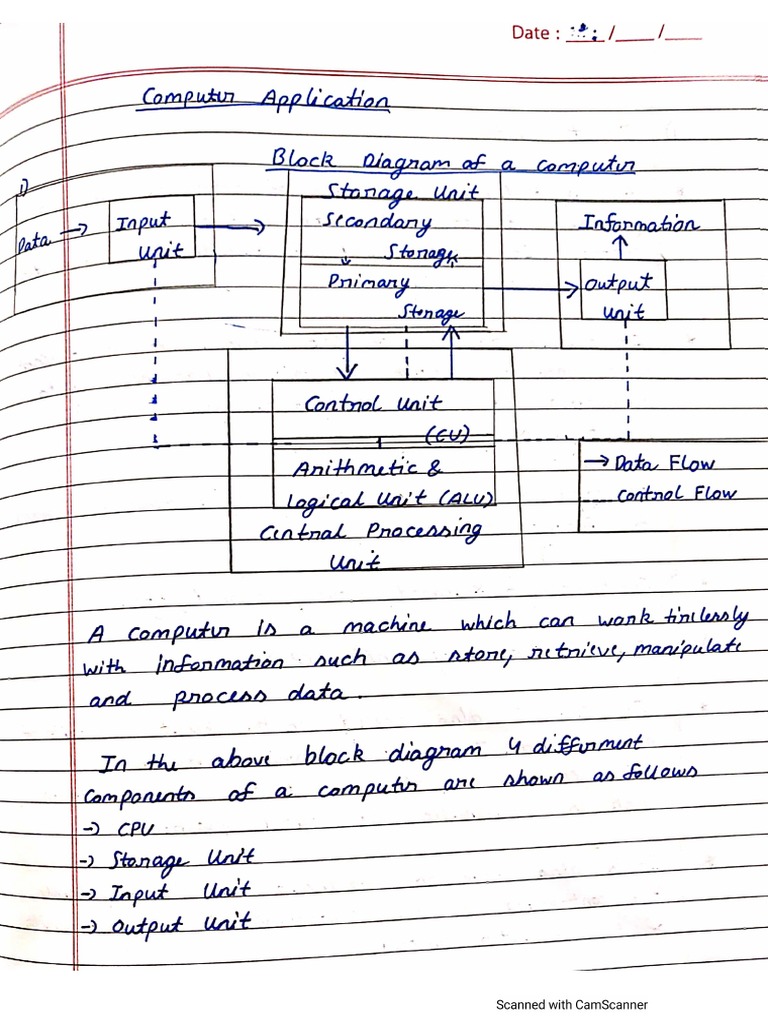 Date : / /
Computer Application
Block Diagram of a computer
1)
Storage Unit
Data → Input
Unit
Secondary
Storage
Primary
Storage
Information
Output
Unit
Control Unit
(CU)
Arithmetic &
Logical Unit (ALU)
Central Processing
Unit
→ Data Flow
Control Flow
A computer is a machine which can work tirelessly
with information such as store, retrieve, manipulate
and process data.
In the above block diagram 4 different
components of a computer are shown as follows
→ CPU
→ Storage Unit
→ Input Unit
→ Output Unit
Scanned with CamScanner